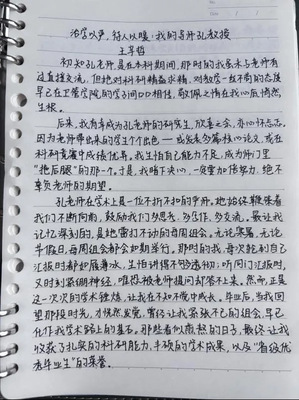 治学以严,待人以暖:我的导师孔教授
王享哲
初知孔老师,是在本科期间,那时的我虽未与老师有
过直接交流,但她对科研精益求精、对教学一丝不苟的态度
早已在卫管学院的学子间口口相传,敬佩之情在我心底悄然
生根。
后来,我有幸成为孔老师的研究生,欣喜之余,亦心怀忐忑。
因为老师带出来的学生个个出色——或发表多篇核心论文,或在
科研竞赛中成绩优异。我生怕自己能力不足,成为师门里
“拖后腿”的那一个。于是,我暗下决心,一定要加倍努力,绝不
辜负老师的期望。
孔老师在学术上是一位不折不扣的严师。她始终鞭策着
我们不断向前,鼓励我们多思考、多写作、多交流。最让我
记忆深刻的,是她雷打不动的每周组会。无论寒暑、无论
节假日,每周组会都会如期举行。那时的我,每次轮到自己
汇报时都如履薄冰,生怕讲得不够透彻;听同门汇报时,
又时刻紧绷神经,唯恐被老师提问却答不上来。然而,正是
这一次次的学术锤炼,让我在不知不觉中成长。毕业后,当我回
望那段时光,才恍然发觉,曾经让我紧张不已的组会,早已
化作我学术路上的基石。那些看似煎熬的日子,最终让我
收获了扎实的科研能力、丰硕的学术成果,以及“省级优
秀毕业生”的荣誉。